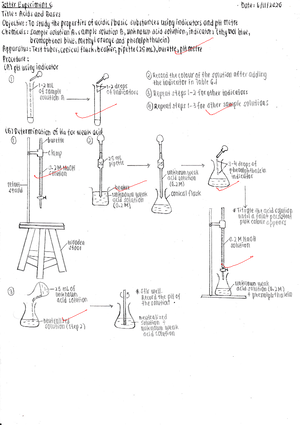 Date: 6/11/2020
Title: Acids and Bases
Objective: To study the properties of acidic/basic substances using indicators and pH meter
Chemicals: Sample solution A, sample solution B, unknown acid solution, indicators (methyl blue,
bromophenol blue, methyl orange and phenolphthalein)
Apparatus: Test tubes, conical flask, beaker, pipette (25 mL), burette, pH meter
Procedure:
(A) pH using indicator
①
1-2 mL
of sample
solution A
1-2 drops
of indicators
② Record the colour of the solution after adding
the indicator in Table 6.1
③ Repeat steps 1-2 for other indicators
④ Repeat steps 1-3 for other sample solutions
(B) Determination of Ka for weak acid
①
burette
clamp
0.2 M NaOH
solution
retort
stand
wooden
stool
②
25 mL
pipette
beaker
unknown weak
acid solution
(0.2M)
unknown weak
acid solution
(0.2M)
conical flask
3-4 drops of
phenolphthalein
indicator
* Titrate the acid solution
until a faint persistent
pink colour appears
0.2 M NaOH
solution
unknown weak
acid solution (0.2M)
+ phenolphthalein
③
25 mL of
unknown
acid solution
neutralized
solution (step 2)
* Stir well.
Record the pH of
the solution
neutralized
solution +
unknown weak
acid solution